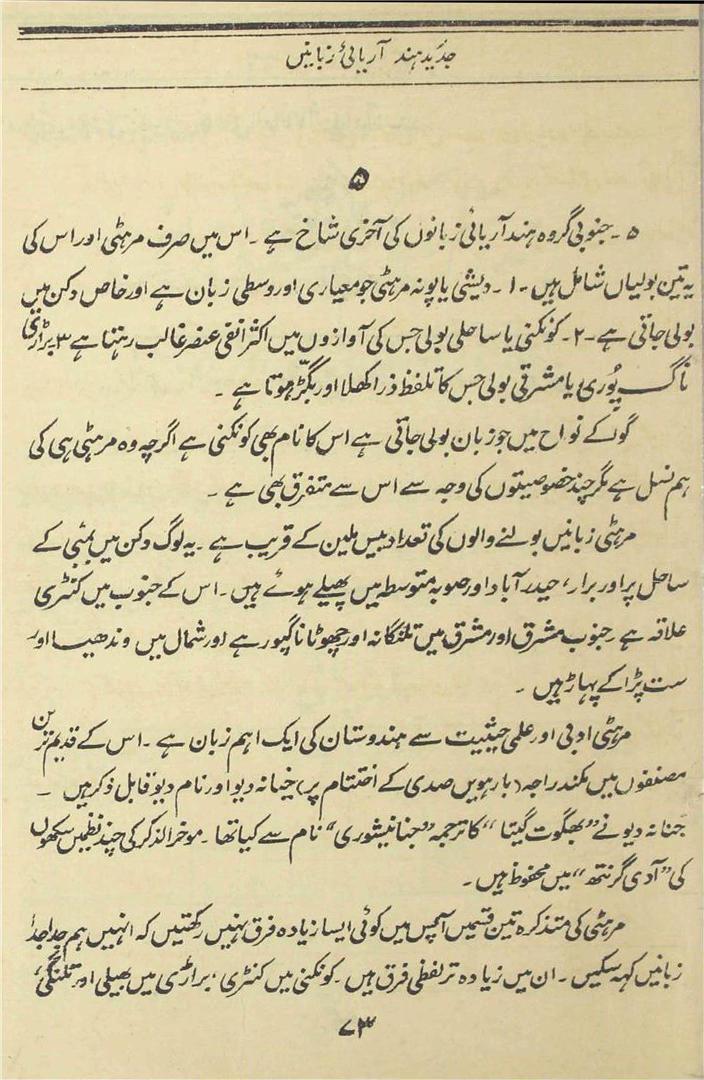 جدید ہند آریائی زبانیں
۵
۵ ۔ جنوبی گروہ ہند آریائی زبانوں کی آخری شاخ ہے ۔ اس میں صرف مرہٹی اور اس کی
یہ تین بولیاں شامل ہیں ۔ ۱ ۔ دیشی یا پونہ مرہٹی جو معیاری اور وسطی زبان ہے اور خاص دکن میں
بولی جاتی ہے ۔ ۲ ۔ کونکنی یا ساحلی بولی جس کی آوازوں میں اکثر انفی عنصر غالب رہتا ہے ۳ براڑی
ناگ پُوری یا مشرقی بولی جس کا تلفظ ذرا کھلا اور بگڑا ہوتا ہے ۔
گوا کے نواح میں جو زبان بولی جاتی ہے اس کا نام بھی کونکنی ہے اگرچہ وہ مرہٹی ہی کی
ہم نسل ہے مگر چند خصوصیتوں کی وجہ سے اس سے متفرق بھی ہے ۔
مرہٹی زبانیں بولنے والوں کی تعداد بیس ملین کے قریب ہے ۔ یہ لوگ دکن میں بمبئی کے
ساحل پر اور برار، حیدرآباد اور صوبہ متوسط میں پھیلے ہوئے ہیں ۔ اس کے جنوب میں کنٹری
علاقہ ہے ۔ جنوب مشرق اور مشرق میں تلنگانہ اور چھوٹا ناگپور ہے اور شمال میں وندھیا اور
ست پڑا کے پہاڑ ہیں ۔
مرہٹی ادبی اور علمی حیثیت سے ہندوستان کی ایک اہم زبان ہے ۔ اس کے قدیم ترین
مصنفوں میں مکند راجہ (بارہویں صدی کے اختتام پر) جنانہ دیو اور نام دیو قابل ذکر ہیں ۔
جنانہ دیو نے ”بھگوت گیتا“ کا ترجمہ ”جنانیشوری“ نام سے کیا تھا ۔ موخرالذکر کی چند نظمیں سکھوں
کی ”آدی گرنتھ“ میں محفوظ ہیں ۔
مرہٹی کی متذکرہ تین قسمیں آپس میں کوئی ایسا زیادہ فرق نہیں رکھتیں کہ انہیں ہم جداجدا
زبانیں کہہ سکیں ۔ ان میں زیادہ تر لفظی فرق ہیں ۔ کونکنی میں کنٹری، براڑی میں بھیلی اور تلنگی،
۷۳